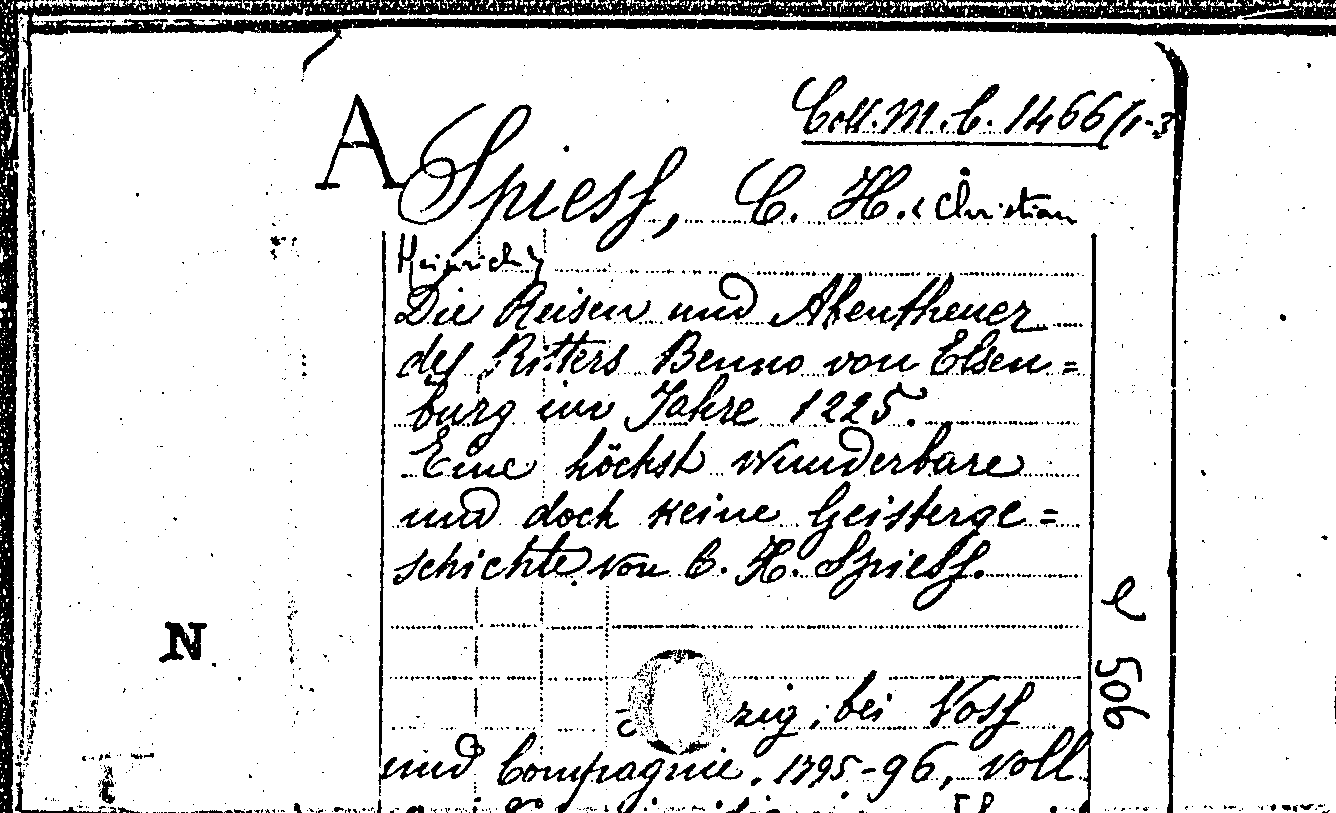 Coll. M. C. 1466/1-3
A Spiess, C. H. <Christian
Heinrich>
Die Reisen und Abentheuer
des Ritters Benno von Elsen=
burg im Jahre 1225.
Eine höchst wunderbare
und doch keine Geisterge=
schichte von C. H. Spiess.
e 506
N
zig, bei Voss
und Compagnie. 1795-96, voll